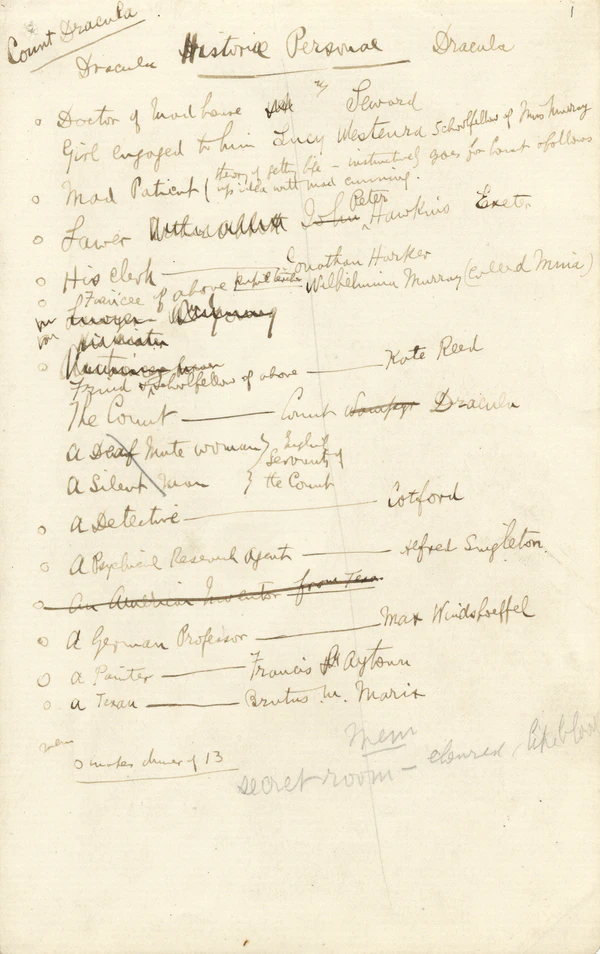 1
Count Dracula
Dracula Historiae Personae Dracula
Doctor of Mad house Seward
Girl engaged to him Lucy Westenra schoolfellow of Miss Murray
Mad Patient (theory of getting life – instinctively goes for Count & follows
up idea with mad cunning.
Lawer John Peter Hawkins Exeter
His clerk — Jonathan Harker
Fiancee of above pupil teacher Wilhelmina Murray (called Mina)
Lawyer
Friend & schoolfellow of above — Kate Reed
The Count — Count Wampyr Dracula
A Deaf Mute woman } English
Servants of
A Silent Man } the Count
A Detective — Cotford
A Psychical Research Agent — Alfred Singleton.
An American Inventor from Texas
A German Professor — Max Windshoeffel
A Painter — Francis Aytown
A Texan — Brutus M. Marix
mem
makes dinner of 13
Mem
secret room – coloured like blood